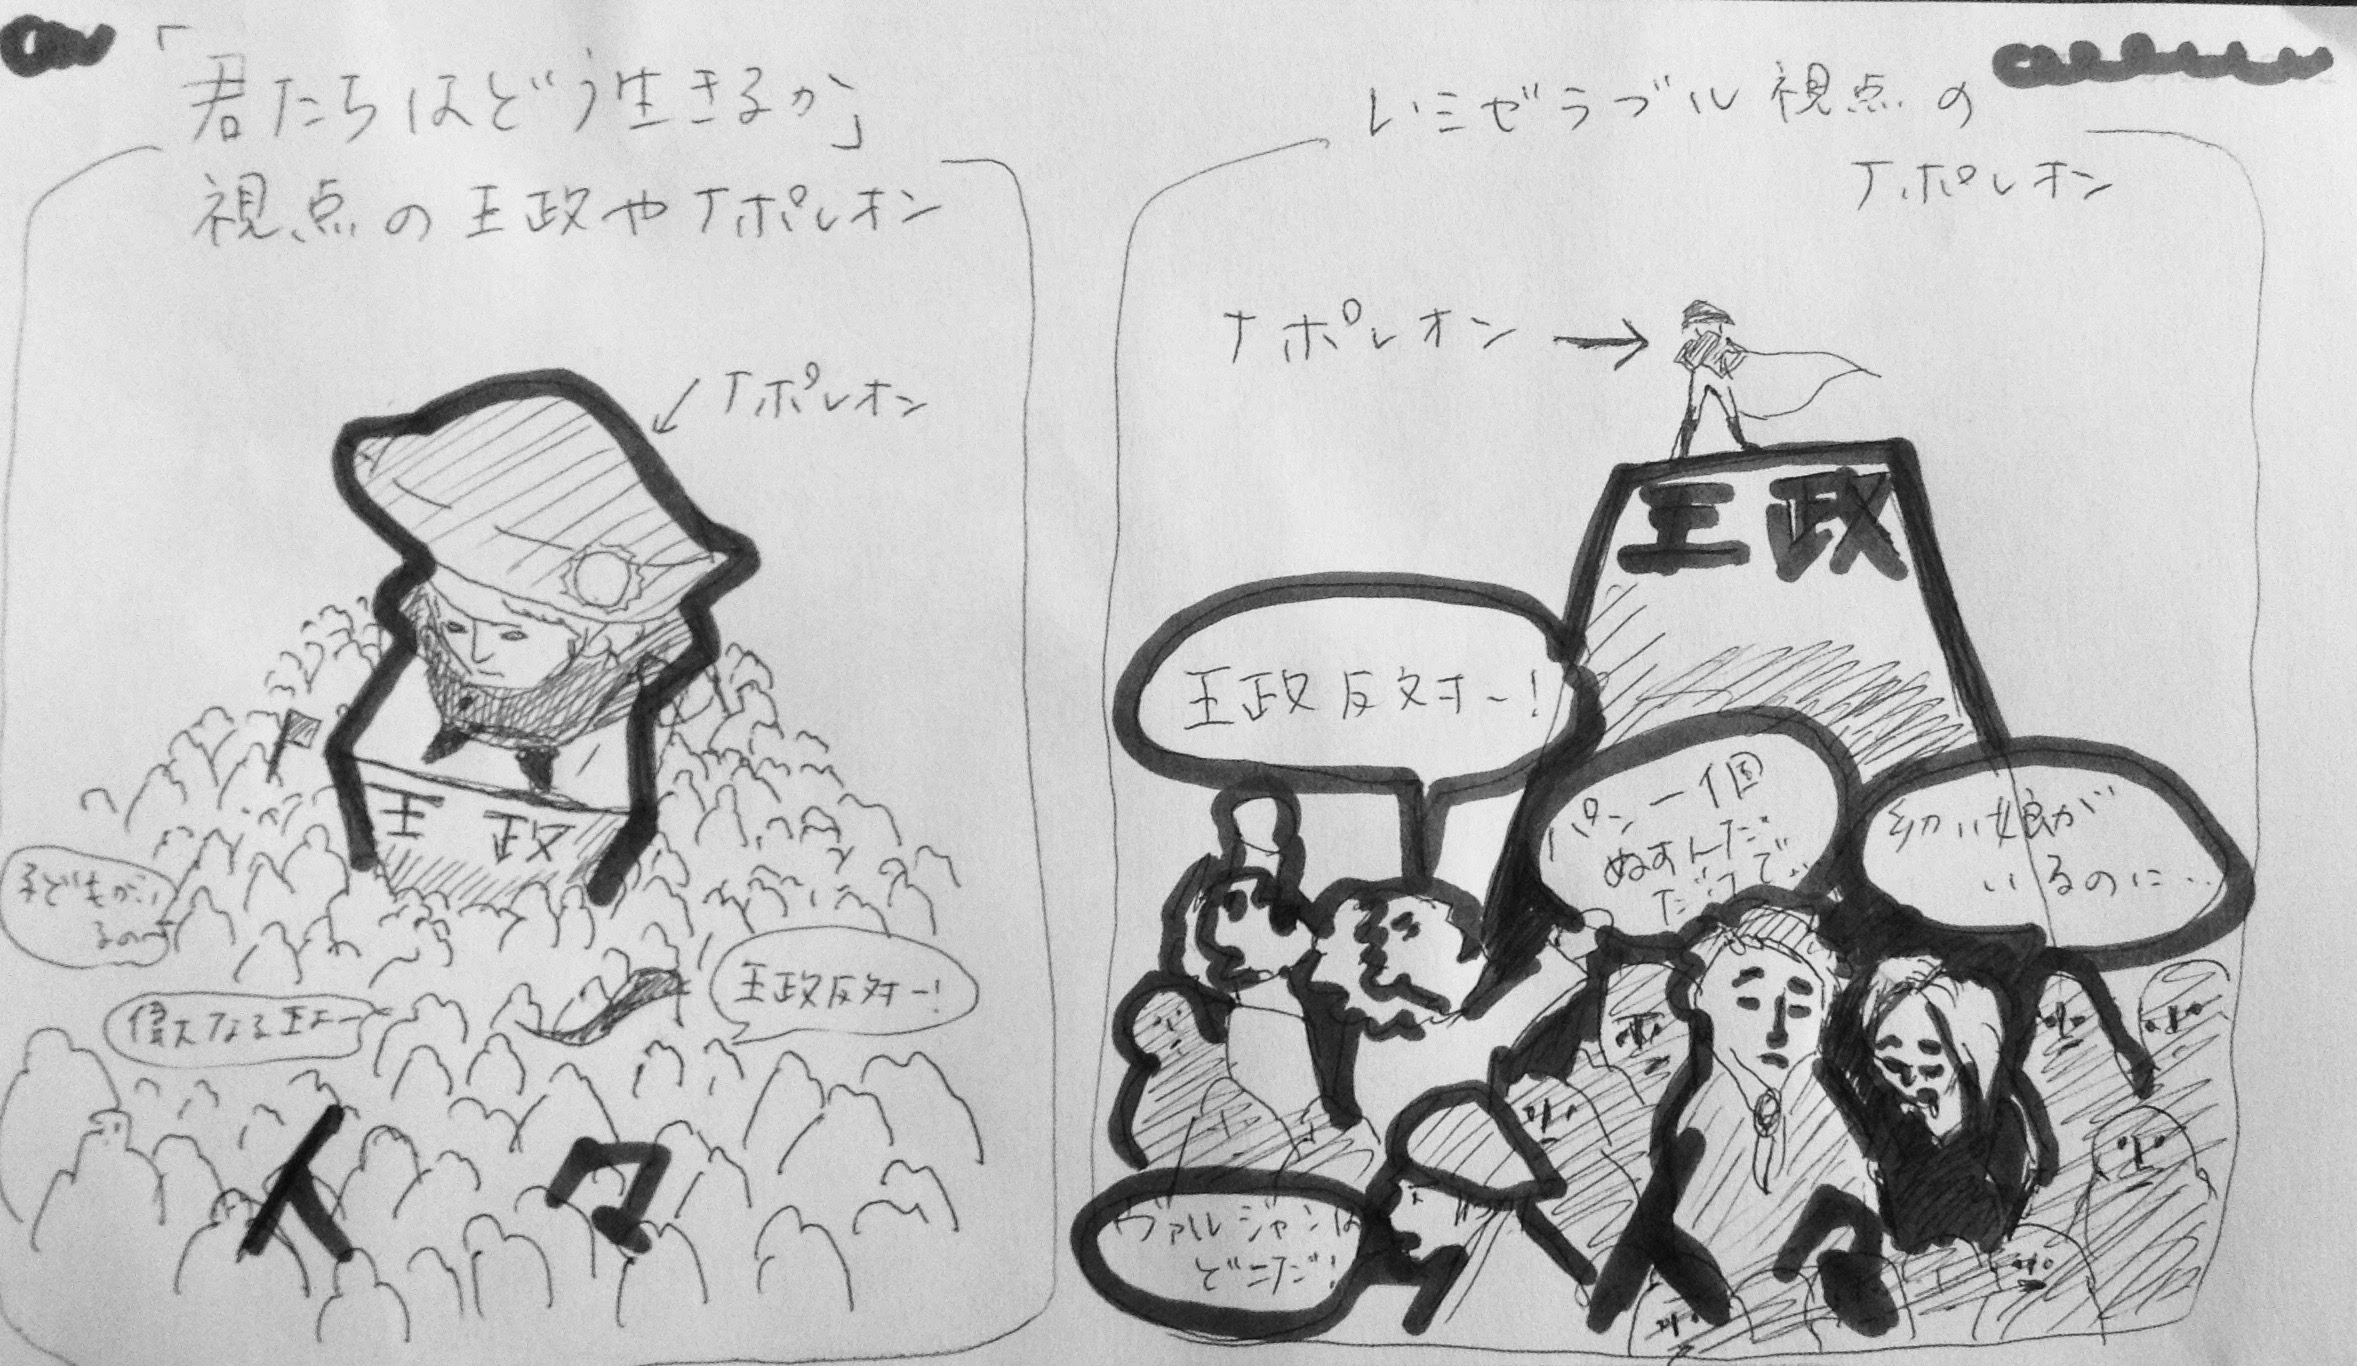 「君たちはどう生きるか」
視点の王政やナポレオン
ナポレオン
王政
子どもがい
るの
偉大なる王よー
王政反対ー!
人々
レミゼラブル視点の
ナポレオン
ナポレオン→
王政
王政反対ー!
パン一個
ぬすんだ
だけで..
幼い娘が
いるのに..
ヴァルジャンは
どこだ!
人々